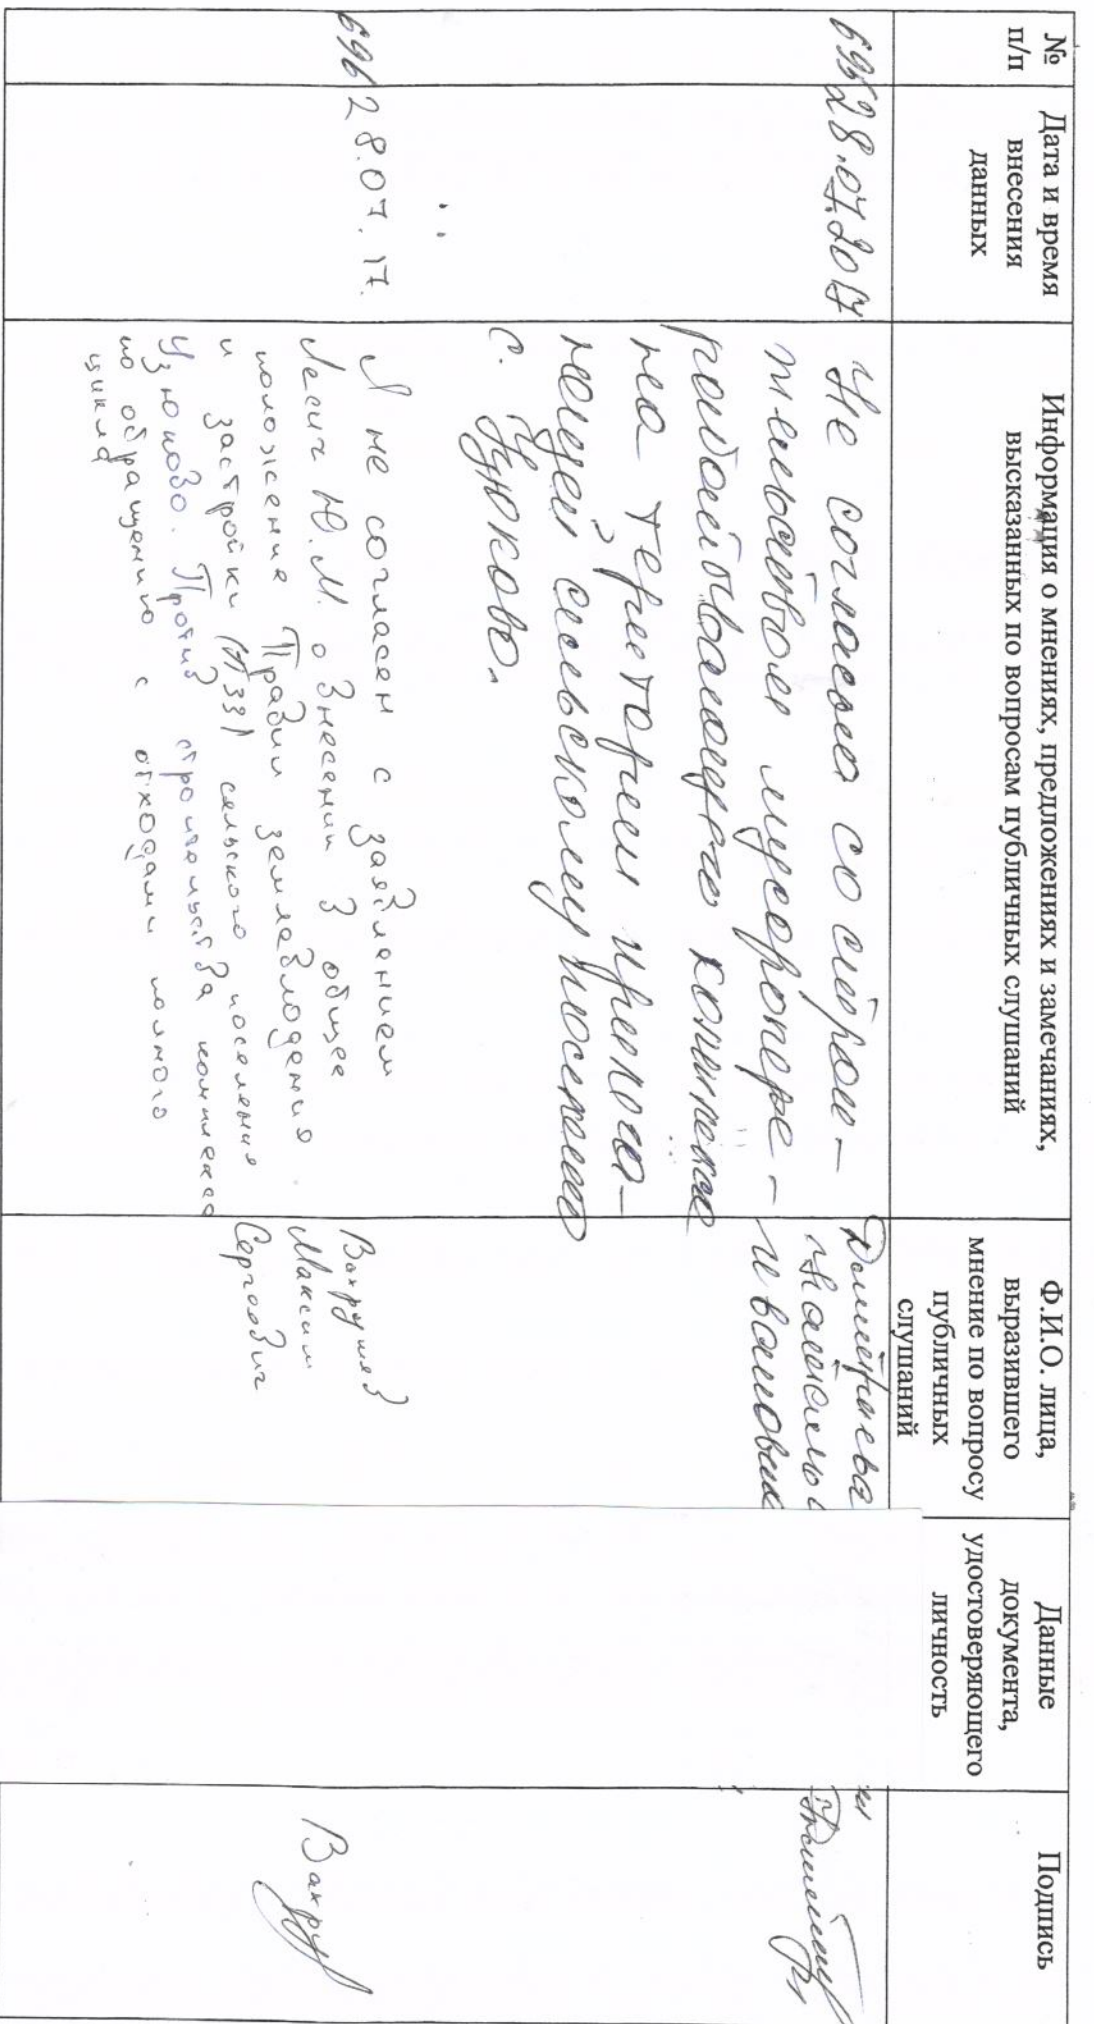 №
п/п
Дата и время
внесения
данных
Информация о мнениях, предложениях и замечаниях,
высказанных по вопросам публичных слушаний
Ф.И.О. лица,
выразившего
мнение по вопросу
публичных
слушаний
Данные
документа,
удостоверяющего
личность
Подпись
695 28.07.2017
Не согласна со строи-
тельством мусоропере-
рабатывающего комплекса
на территории прилега-
ющей сельскому поселению
с. Узюково.
Дмитриева
Наталья
Ивановна
696 28.07.17.
Я не согласен с заявлением
Лесич Ю.М. о внесении в общее
положение Правил землевлодения
и застройки (ПЗЗ) сельского поселения
Узюково. Против строительства комплекса
по обращению с отходами полного
цикла
Вахрушев
Максим
Сергеевич
Вахру